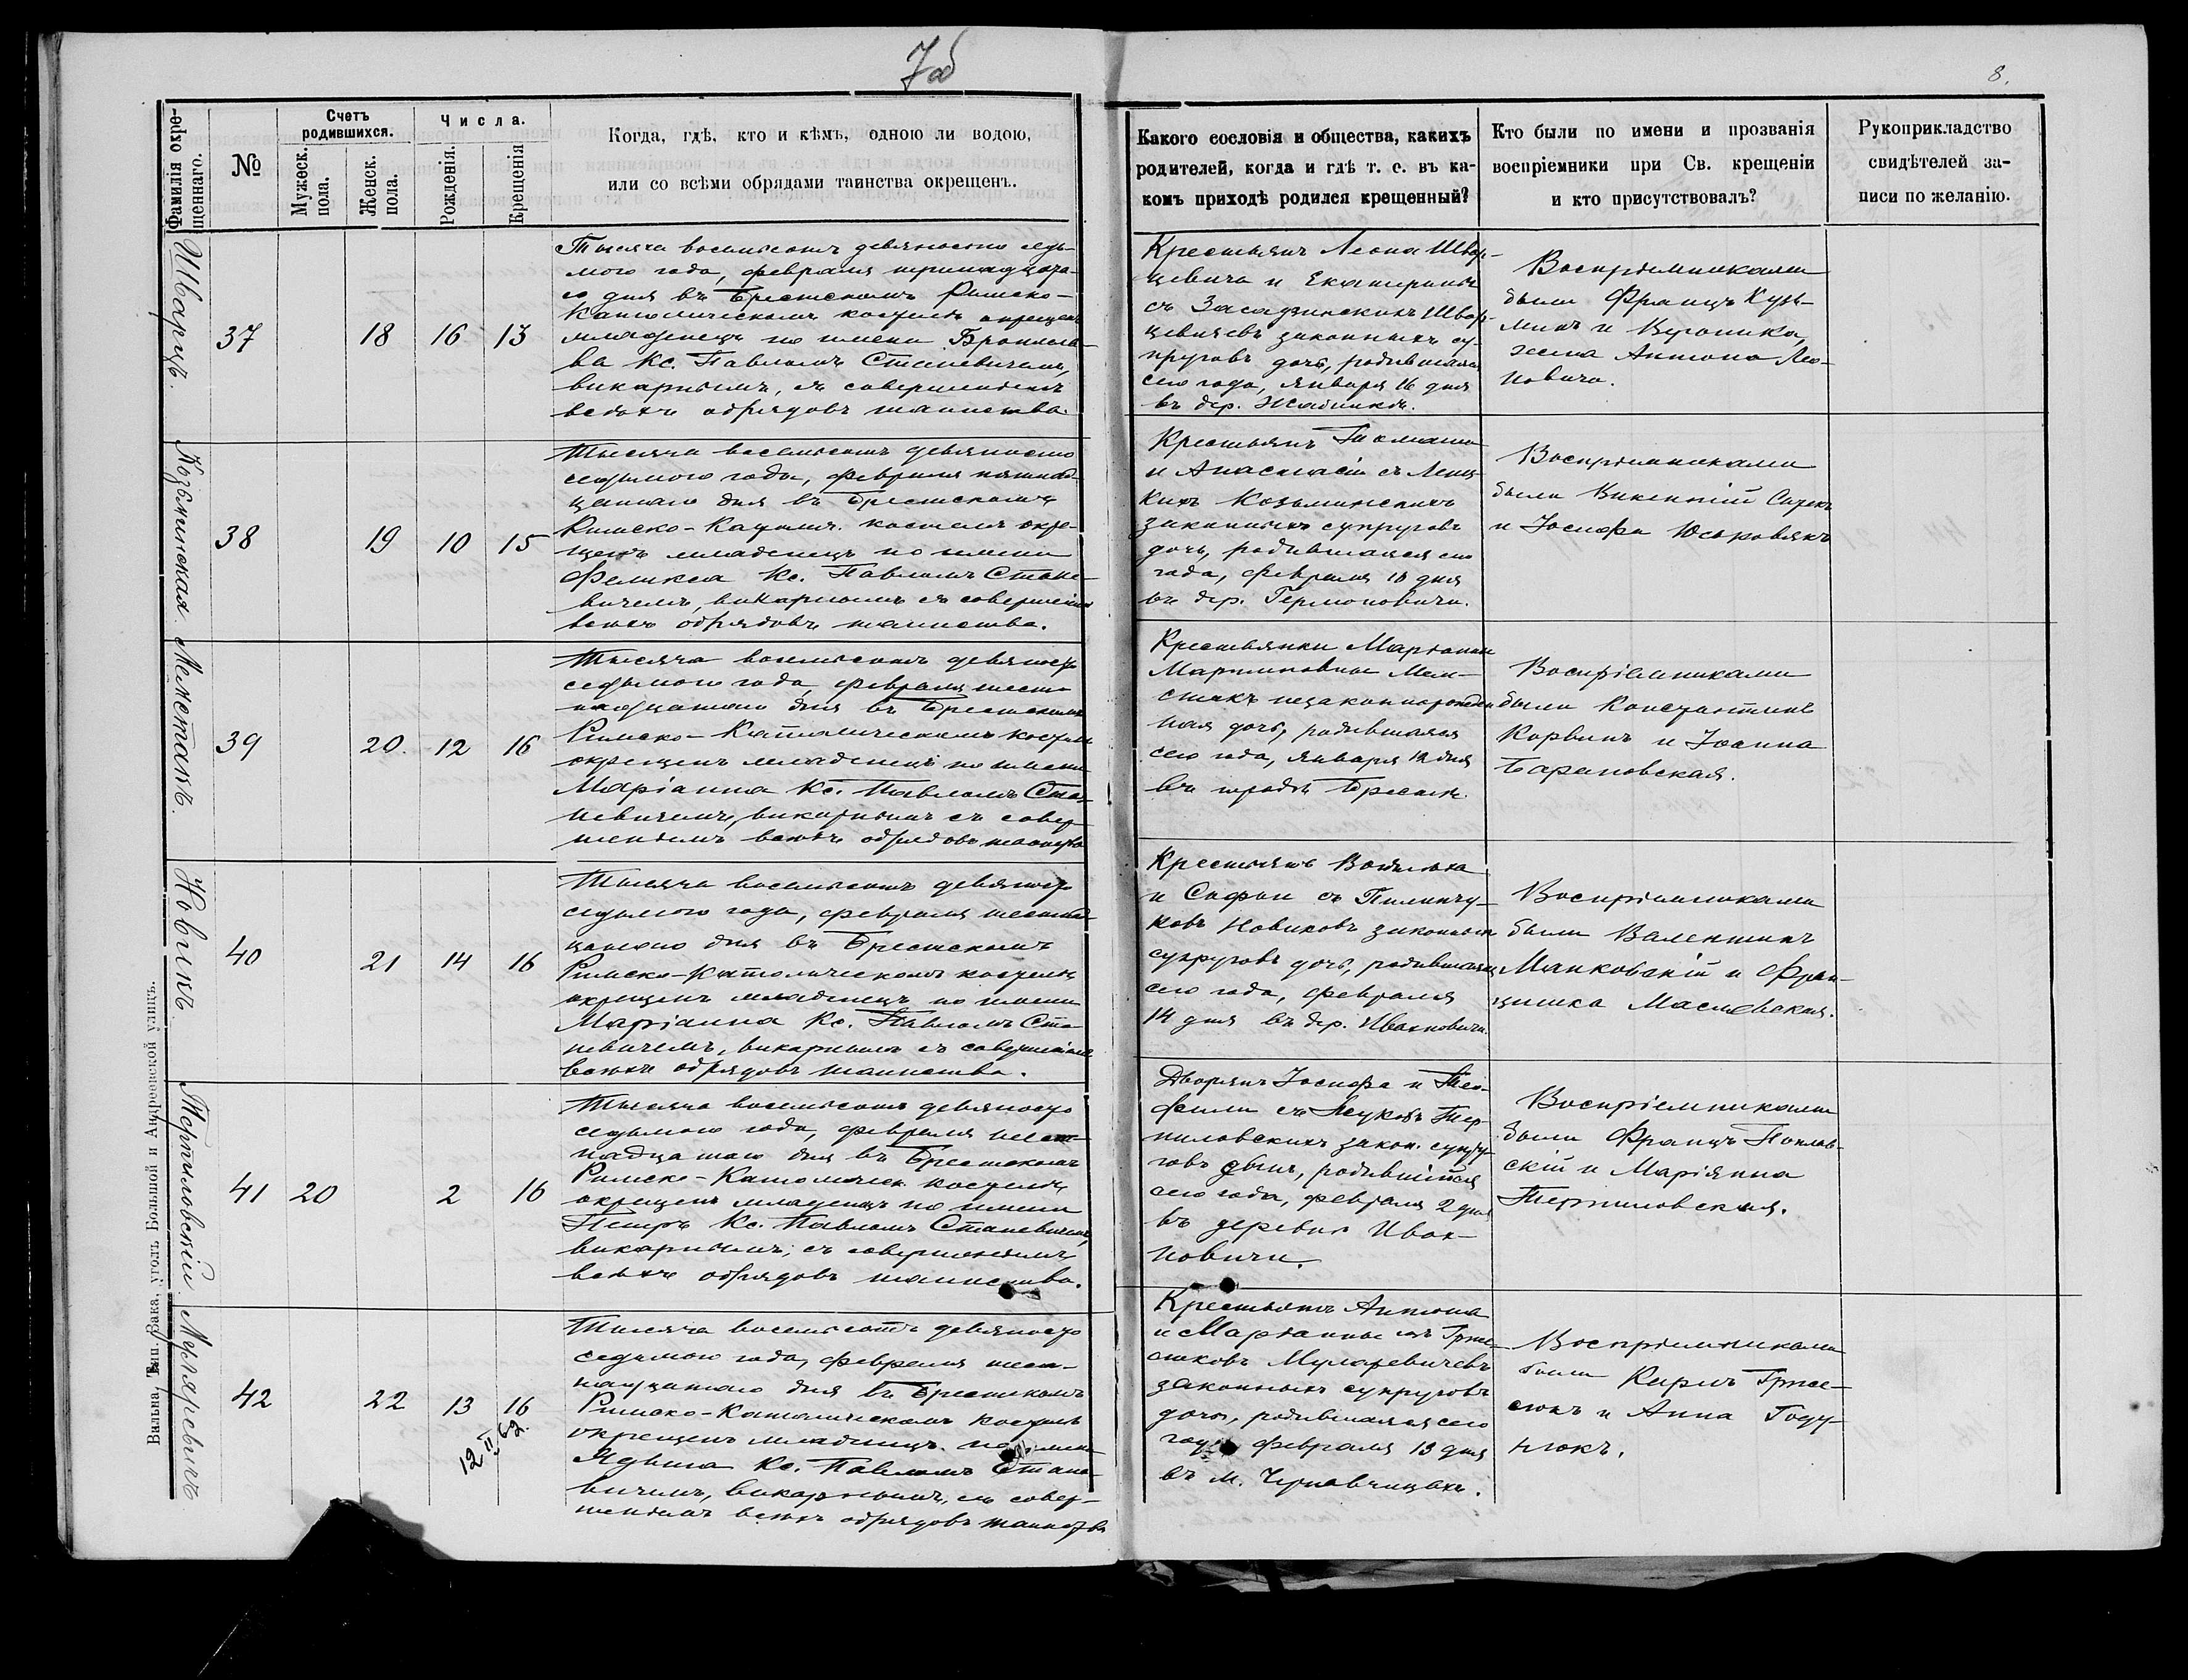 7об
8.
Фамилія окре-
щеннаго.
№
Счетъ
родившихся.
Мужеск.
пола.
Женск.
пола.
Числа.
Рожденія.
Крещенія
Когда, гдѣ, кто и кѣмъ, одною ли водою,
или со всѣми обрядами таинства окрещенъ.
Какого сословія и общества, какихъ
родителей, когда и гдѣ т. е. въ ка-
комъ приходѣ родился крещенный?
Кто были по имени и прозванія
воспріемники при Св. крещеніи
и кто присутствовалъ?
Рукоприкладство
свидѣтелей за-
писи по желанію.
Шварцъ.
37
18
16
13
Тысяча восемьсотъ девяносто седь-
мого года, февраля тринадцата-
го дня въ Брестскомъ Римско-
Католическомъ костелѣ окрещенъ
младенецъ по имени Бронисла-
ва Кс. Павломъ Станевичемъ,
викарнымъ, съ совершеніемъ
всѣхъ обрядовъ таинства.
Крестьянъ Леона Швар-
цевича и Екатерины
съ Засадзинскихъ Швар-
цевичевъ законныхъ су-
пруговъ дочь, родившаяся
сего года, января 16 дня
въ дер.
Воспріемниками
были Францъ Кузь-
минъ и Вероника,
жена Антона Лео-
новича.
Козьминская.
38
19
10
15
Тысяча восемьсотъ девяносто
седьмого года, февраля пятнад-
цатаго дня въ Брестскомъ
Римско-Католич. костелѣ окре-
щенъ младенецъ по имени
Феликса Кс. Павломъ Стане-
вичемъ, викарнымъ съ совершеніемъ
всѣхъ обрядовъ таинства.
Крестьянъ
и Анастасіи съ
кихъ Козьминскихъ
законныхъ супруговъ
дочь, родившаяся сего
года, февраля 10 дня
въ дер. Гермоновичи.
Воспріемниками
были Викентій
и Іосифа
Мемстакъ.
39
20.
12
16
Тысяча восемьсотъ девяносто
седьмого года, февраля шест-
надцатаго дня въ Брестскомъ
Римско-Католическомъ костелѣ
окрещенъ младенецъ по имени
Маріанна Кс. Павломъ Ста-
невичемъ, викарнымъ съ совер-
шеніемъ всѣхъ обрядовъ таинства
Крестьянки Маріанны
Мартиновны Мем-
стакъ незаконнорожден-
ная дочь, родившаяся
сего года, января 12 дня
въ городѣ Брестѣ.
Воспріемниками
были Константинъ
Корвинъ и Іоанна
Барановская.
Новикъ
40
21
14
16
Тысяча восемьсотъ девяносто
седьмого года, февраля шестнад-
цатаго дня въ Брестскомъ
Римско-Католическомъ костелѣ
окрещенъ младенецъ по имени
Маріанна Кс. Павломъ Ста-
невичемъ, викарнымъ съ совершеніемъ
всѣхъ обрядовъ таинства.
Крестьянъ
и Софіи съ Пилипчу-
ковъ Новиковъ законныхъ
супруговъ дочь, родившаяся
сего года, февраля
14 дня въ дер. Ивахновичи.
Воспріемниками
были Валентинъ
Манковскій и Фран-
цишка Маслевская.
Терпиловскій.
41
20
2
16
Тысяча восемьсотъ девяносто
седьмого года, февраля шест-
надцатаго дня въ Брестскомъ
Римско-Католическ. костелѣ
окрещенъ младенецъ по имени
Петръ Кс. Павломъ Станевичемъ,
викарнымъ, съ совершеніемъ
всѣхъ обрядовъ таинства.
Дворянъ Іосифа и Тео-
фили съ Тер-
пиловскихъ закон. супру-
говъ сынъ, родившійся
сего года, февраля 2 дня
въ деревнѣ Ивах-
новичи.
Воспріемниками
были Францъ Поплав-
скій и Маріянна
Терпиловская.
Муляревичъ
42
22
13
16
12 II 62.
Тысяча восемьсотъ девяносто
седьмого года, февраля шест-
надцатаго дня въ Брестскомъ
Римско-Католическомъ костелѣ
окрещенъ младенецъ по имени
Ядвига Кс. Павломъ Стане-
вичемъ, викарнымъ, съ совер-
шеніемъ всѣхъ обрядовъ таинства
Крестьянъ Антона
и Маріанны изъ Грже-
сюковъ Муляревичевъ
законныхъ супруговъ
дочь, родившаяся сего
года февраля 13 дня
въ м. Чернавчицахъ.
Воспріемниками
были Карлъ Грже-
сюкъ и Анна Году-
нюкъ.
Вильна, Тип. Зака, уголъ Большой и Андреевской улицъ.